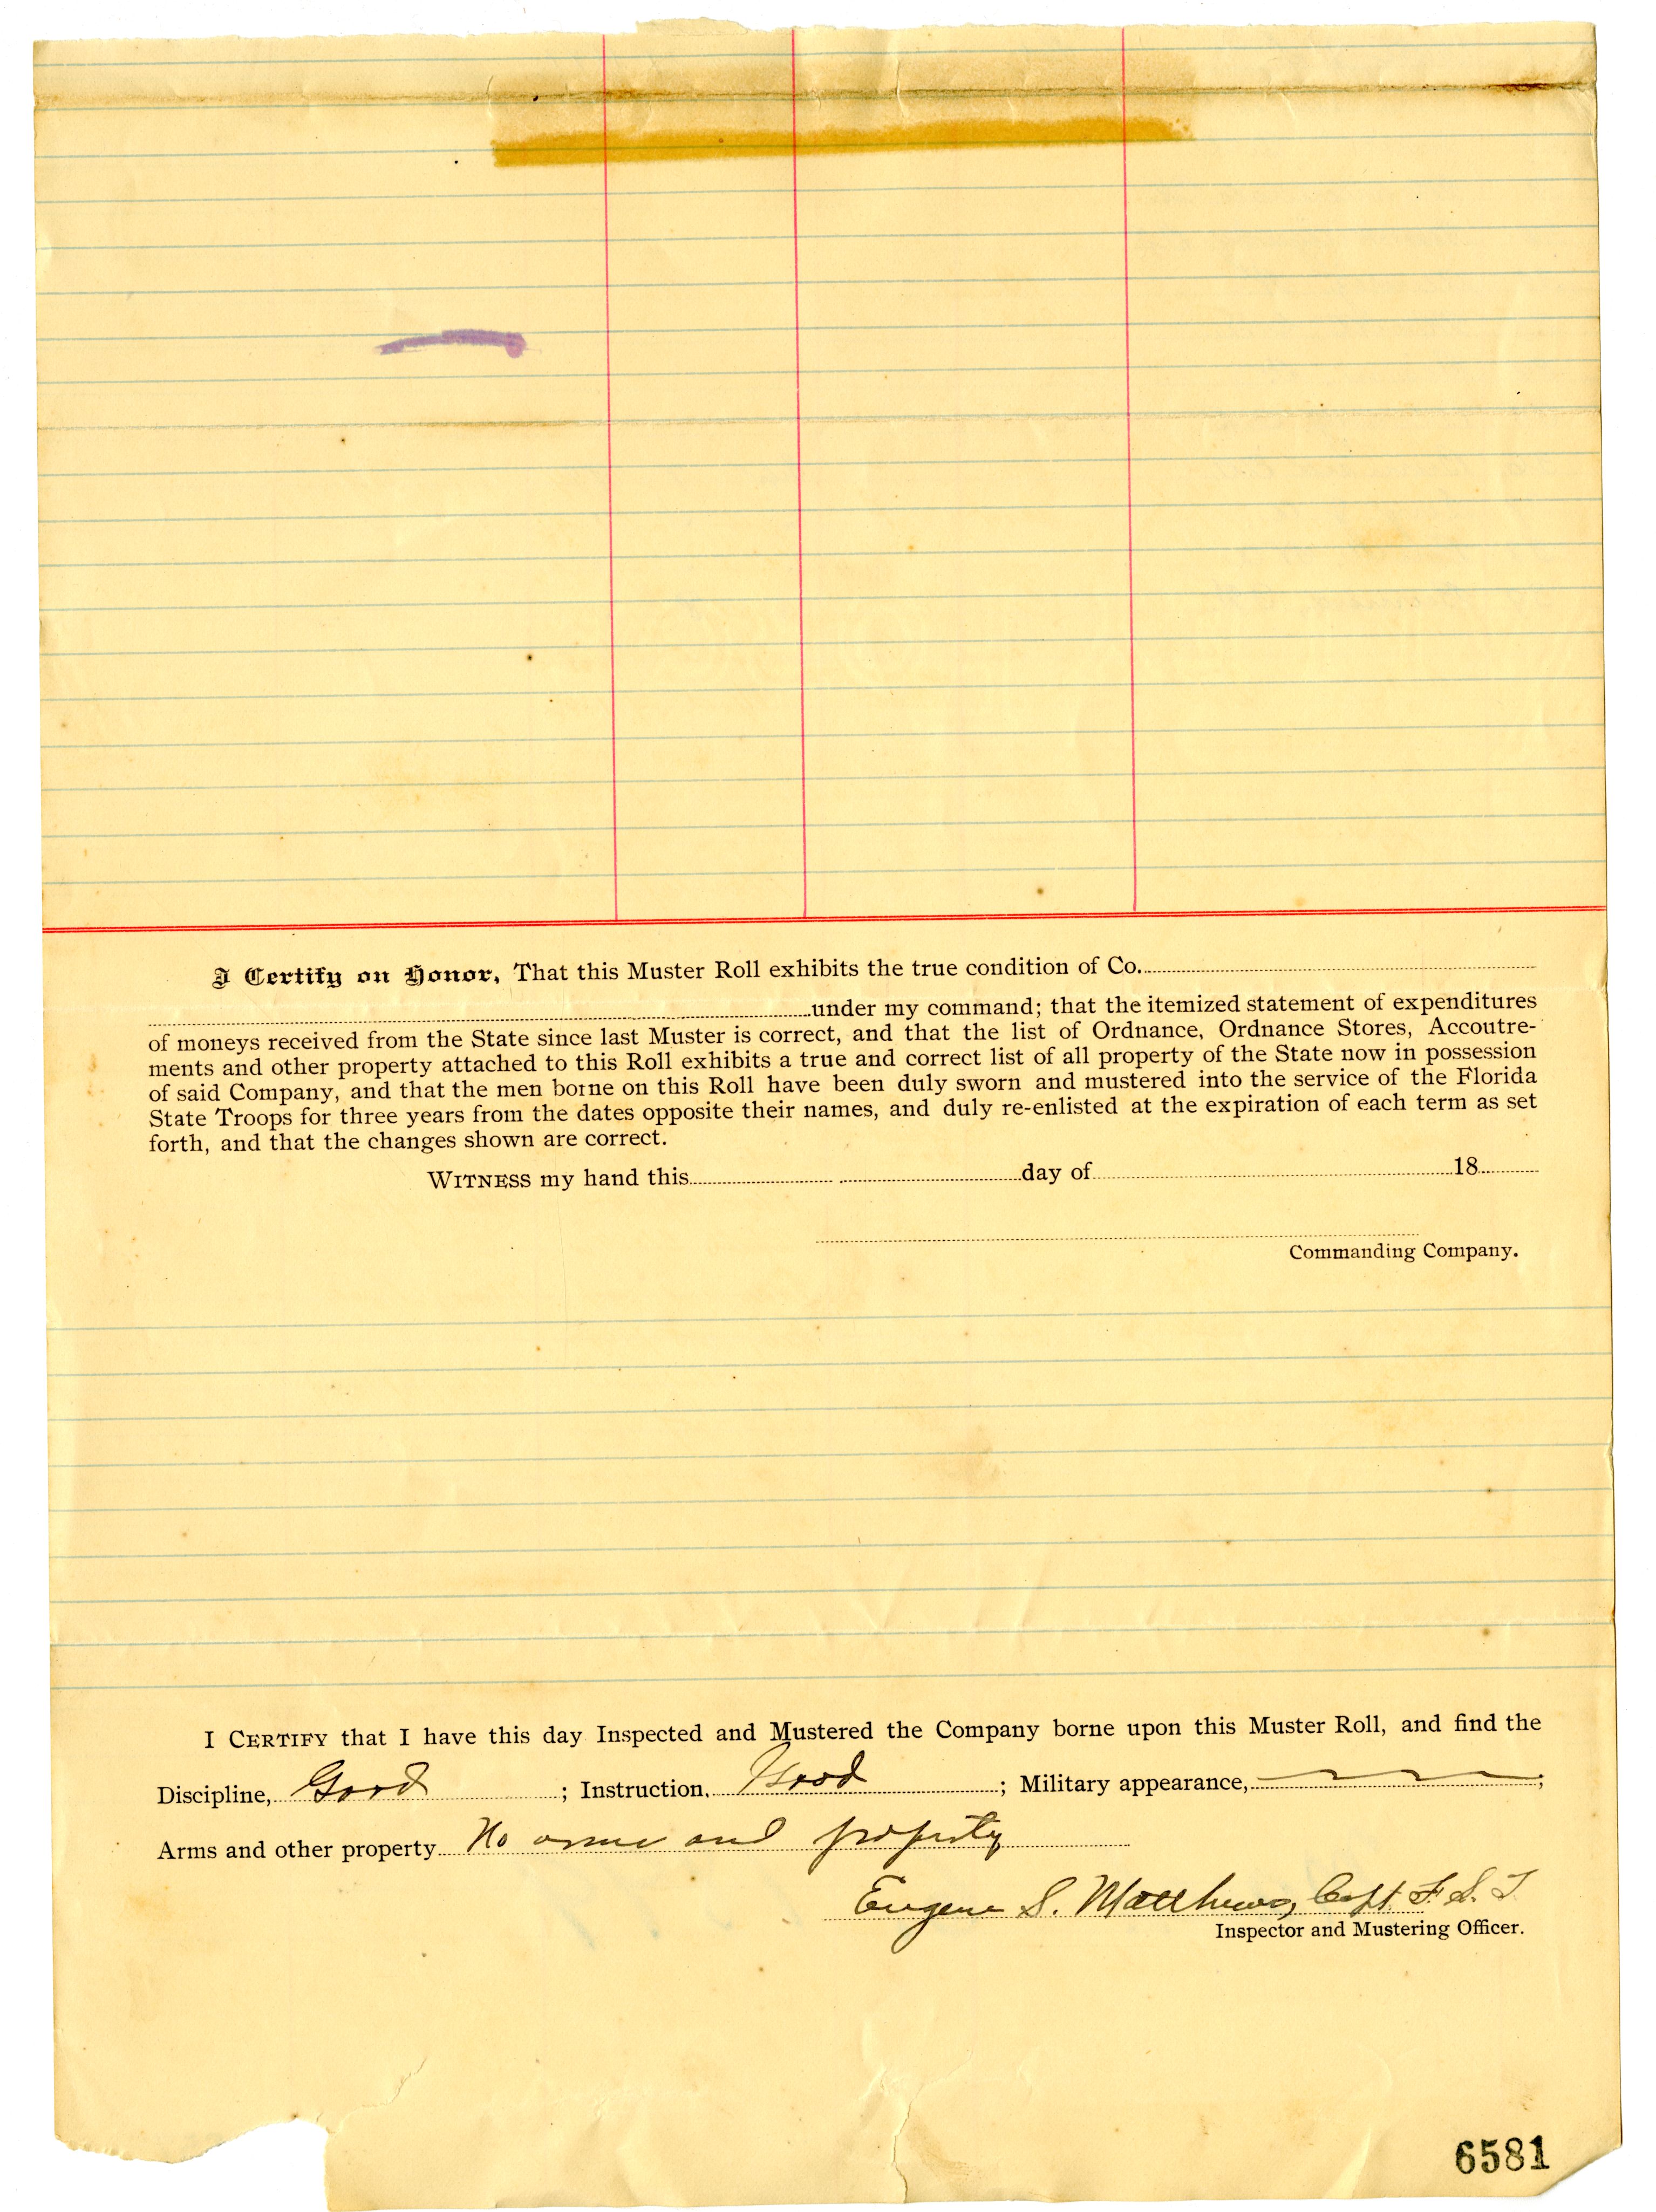 I Certify on Honor, That this Muster Roll exhibits the true condition of Co.
under my command; that the itemized statement of expenditures
of moneys received from the State since last Muster is correct, and that the list of Ordnance, Ordnance Stores, Accoutre-
ments and other property attached to this Roll exhibits a true and correct list of all property of the State now in possession
of said Company, and that the men borne on this Roll have been duly sworn and mustered into the service of the Florida
State Troops for three years from the dates opposite their names, and duly re-enlisted at the expiration of each term as set
forth, and that the changes shown are correct.
WITNESS my hand this day of 18
Commanding Company.
I CERTIFY that I have this day Inspected and Mustered the Company borne upon this Muster Roll, and find the
Discipline, Good ; Instruction, Good ; Military appearance, ;
Arms and other property No arms and property
Eugene S. Matthews, Capt. F. S. T
Inspector and Mustering Officer.
6581